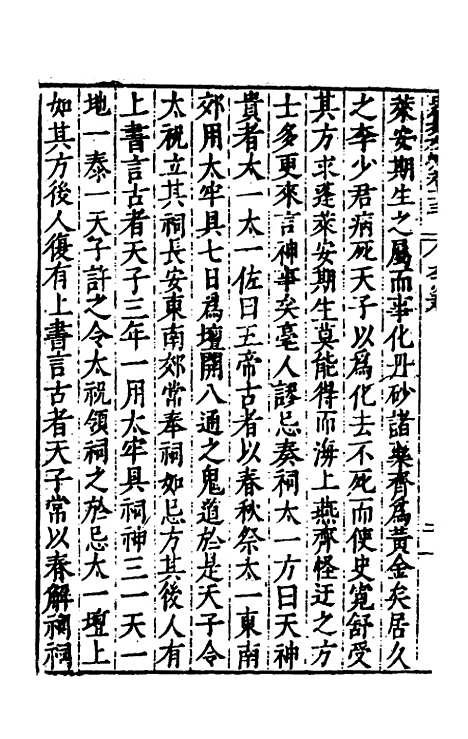 萊安期生之屬而事化丹砂諸藥齊爲黃金矣居久
之李少君病死天子以爲化去不死而使史寛舒受
其方求蓬萊安期生莫能得而海上燕齊怪迂之方
士多更來言神事矣亳人謬忌奏祠太一方曰天神
貴者太一太一佐曰五帝古者以春秋祭太一東南
郊用太牢具七日爲壇開八通之鬼道於是天子令
太祝立其祠長安東南郊常奉祠如忌方其後人有
上書言古者天子三年一用太牢具祠神三一天一
地一泰一天子許之令太祝領祠之於忌太一壇上
如其方後人復有上書言古者天子常以春解祠祠